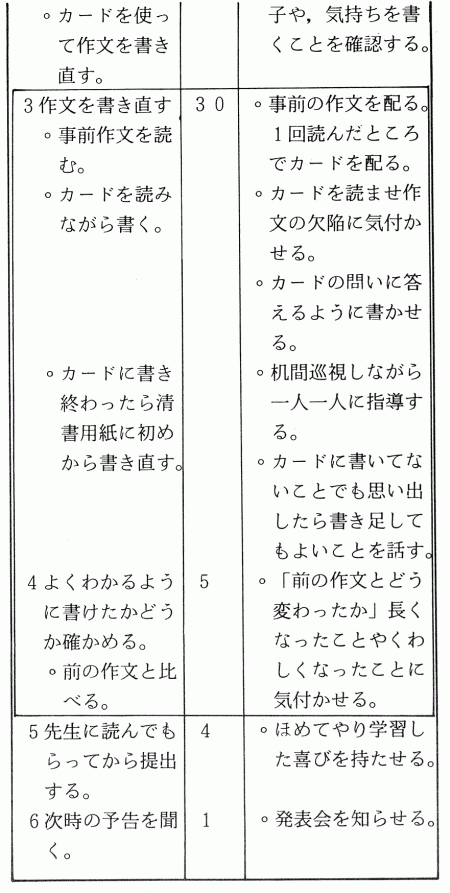 ◦カードを使っ
て作文を書き
直す。
子や，気持ちを書
くことを確認する。
3作文を書き直す
◦事前作文を読
む。
◦カードを読み
ながら書く。
◦カードに書き
終わったら清
書用紙に初め
から書き直す。
30
◦事前の作文を配る。
1回読んだところ
でカードを配る。
◦カードを読ませ作
文の欠陥に気付か
せる。
◦カードの問いに答
えるように書かせ
る。
◦机間巡視しながら
一人一人に指導す
る。
◦カードに書いてな
いことでも思い出
したら書き足して
もよいことを話す。
4よくわかるよう
に書けたかどう
か確かめる。
◦前の作文と比
べる。
5
◦「前の作文とどう
変わったか」長く
なったことやくわ
しくなったことに
気付かせる。
5先生に読んでも
らってから提出
する。
4
◦ほめてやり学習し
た喜びを持たせる。
6次時の予告を聞
く。
1
◦発表会を知らせる。